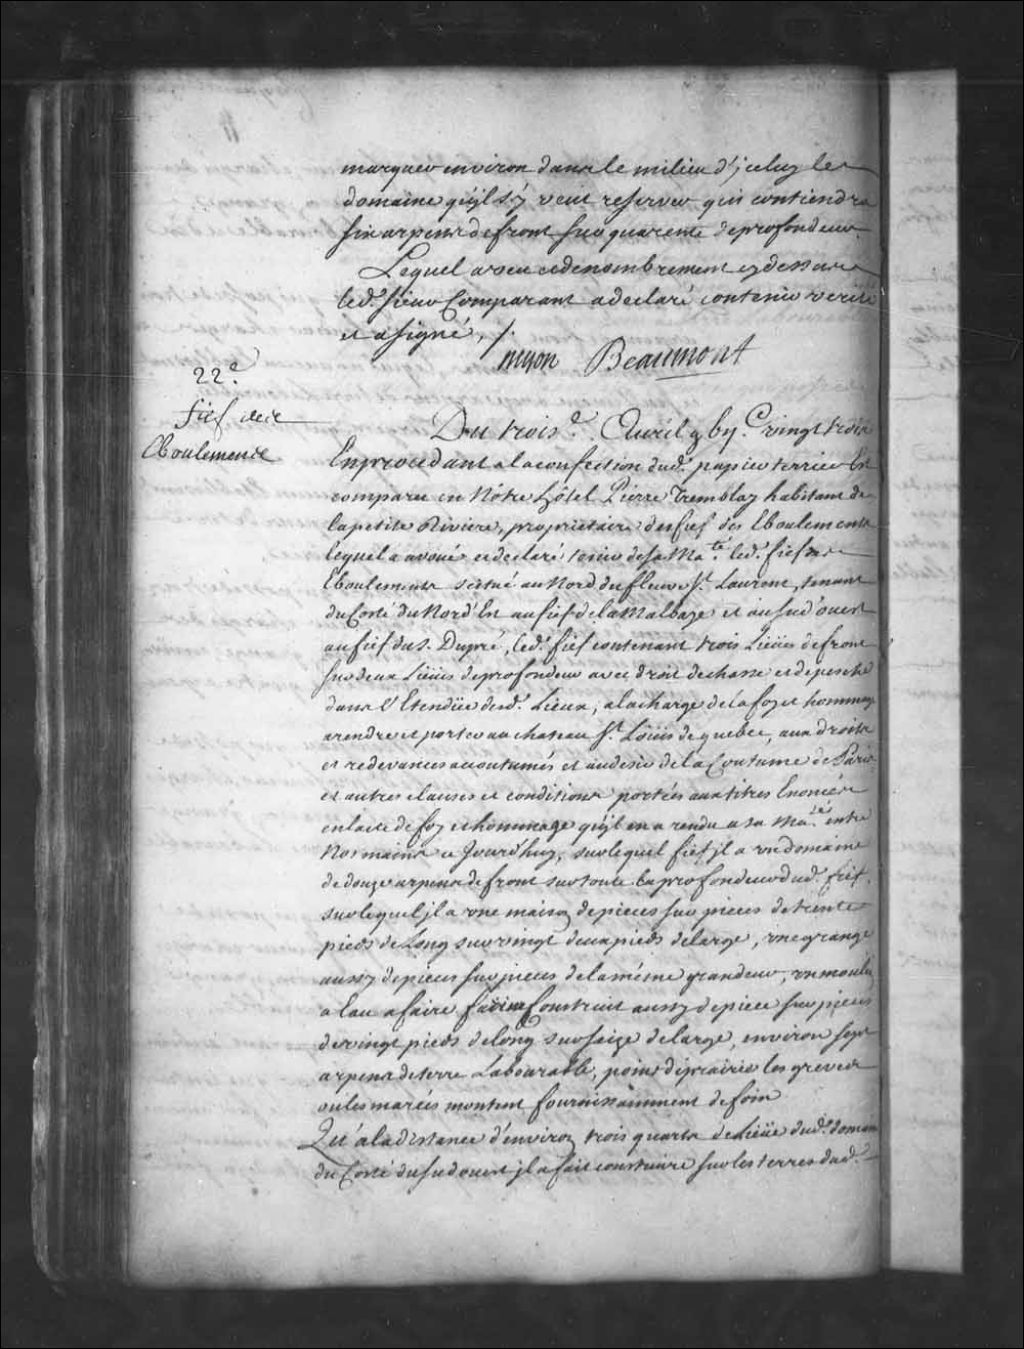 marquer environ dans le milieu d'jceluy le
domaine qu'jl s'y veut reserver qui contiendra
six arpens de front sur quarente de profondeur.
Lequel aveu et denombrement cy dessus
led. sieur Comparant a declaré contenir verité
et a signé, /.
nuyon Beaumont
22e.
fief des
Eboulemens
Du trois e. Avril gbyc. vingt trois
En procedant a la confection dud. papier terrier Est
comparu en Nôtre hôtel Pierre Tremblay habitant de
la petite Riviere, proprietaire du fief des Eboulemens
lequel a avoué et declaré tenir de sa Ma.té led. fief des
Eboulemens scitué au Nord du fleuve St. Laurent, tenant
du Costé du Nord'Est au fief de la Malbaye et au sud'ouest
au fief du s. Dupré, led. fief contenant trois Lieües de front
sur deux Lieües de profondeur avec droit de chasse et de pesche
dans l'Etendüe desd. Lieux, a la charge de la foy et hommage
a rendre et porter au chateau St. Loüis de quebec, aux droits
et redevances accoutumés et au desir de la Coutume de Paris
et autres clauses et conditions portées aux titres Enoncés
en l'acte de foy et hommage qu'jl en a rendu a sa Ma.té entre
Nos mains ce Jourd'huy, sur lequel fief jl a un domaine
de douze arpens de front sur toute la profondeur dud. fief.
sur lequel jl a une maison de pieces sur pieces de trente
pieds de Long sur vingt deux pieds de large, une grange
aussy de pieces sur pieces de la même grandeur, un moulin
a l'eau a faire farine Construit aussy de piece sur pieces
de vingt pieds de long sur saize de large, environ sept
arpens de terre Labourable, point de prairies les greves
ou les marées montent fournissamment de foin
Qu'a la distance d'environ trois quarts de Lieüe dud. domaine
du Costé du sud ouest jl a fait construire sur les terres dud.